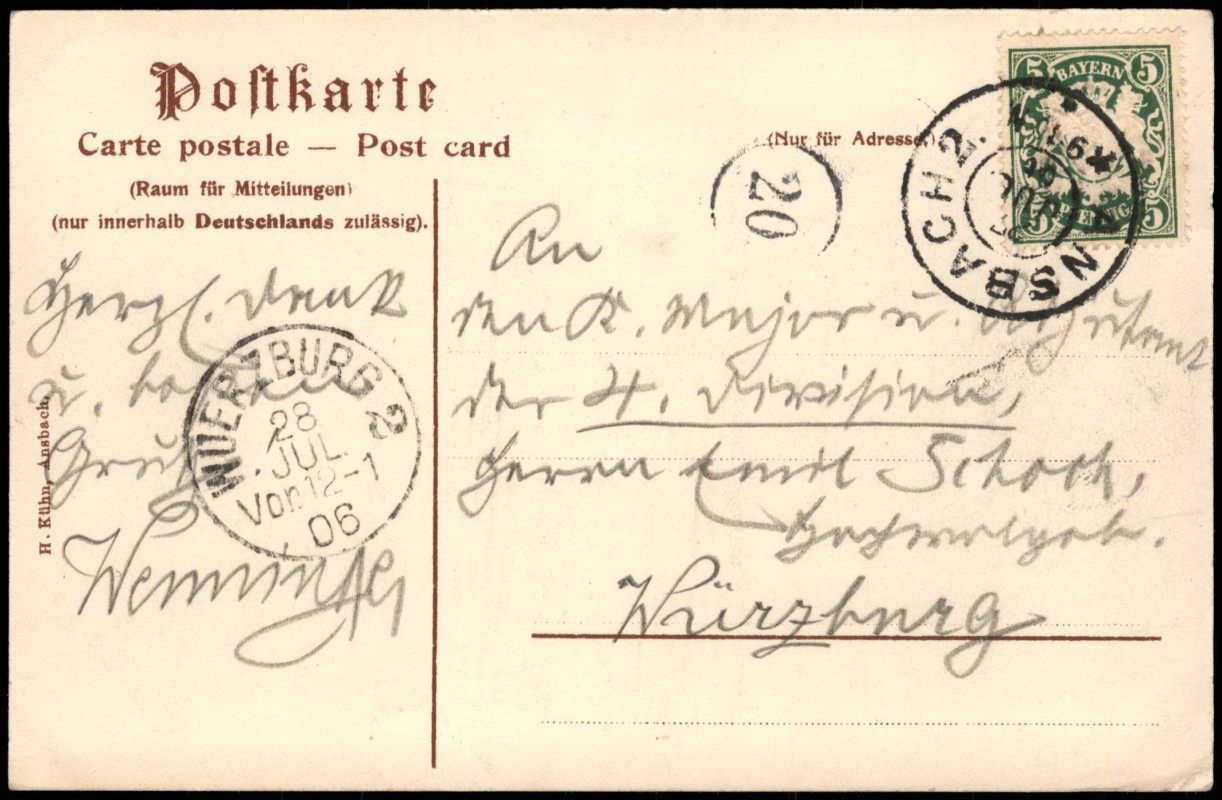 Postkarte
Carte postale — Post card
(Raum für Mitteilungen)
(nur innerhalb Deutschlands zulässig).
(Nur für Adresse.)
5 BAYERN 5
5 PFENNIG 5
ANSBACH 2.
JUL
20
Herzl. Dank
u. besten
Gruß
WUERZBURG 2
28
JUL.
Vor 12-1
06
H. Kühn, Ansbach.
An
den K. Major u. Adjutant
der 4. Division,
Herrn Emil Schoch,
Hochwolgeb.
Würzburg